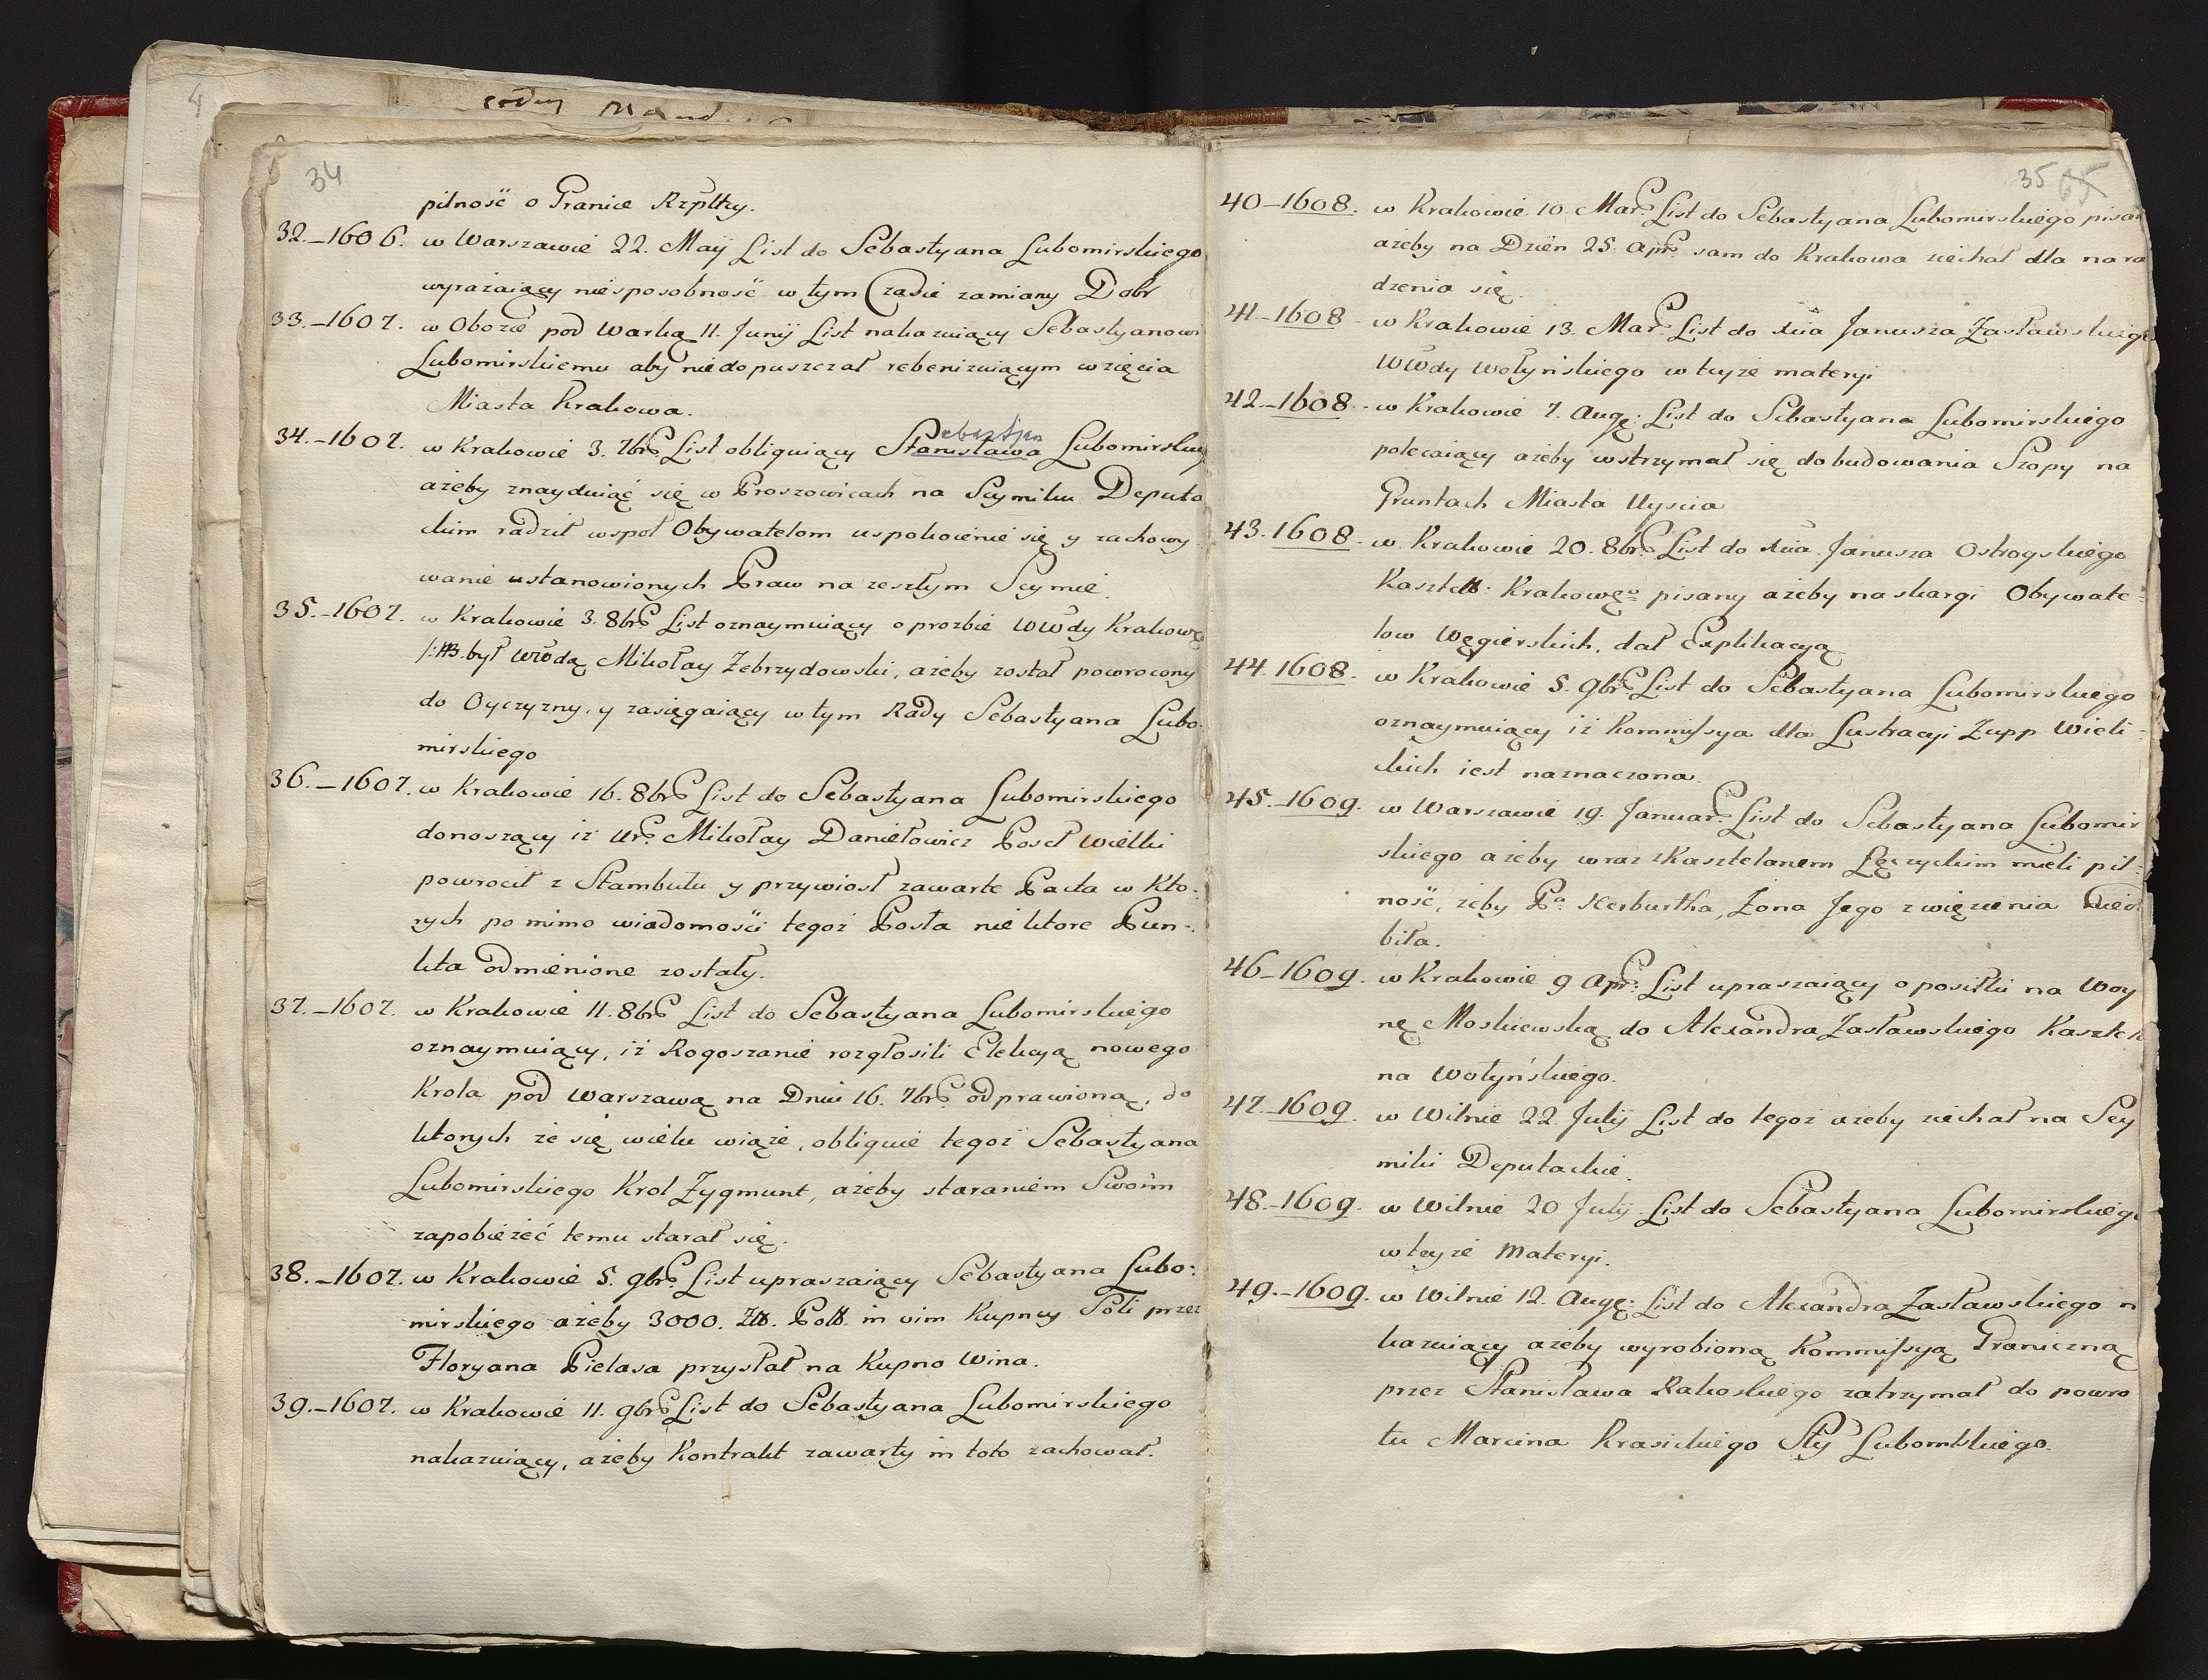 34
pilność o Granice Rzpltey.
32.–1606. w Warszawie 22. Maÿ List do Sebastyana Lubomirskiego
wyrażaiący niesposobność w tym Czasie zamiany Dobr
33.–1607. w Obozie pod Warką 11. Junij List nakazuiący Sebastyanowi
Lubomirskiemu aby niedopuszczał rebenizuiącym wzięcia
Miasta Krakowa.
34.–1607. w Krakowie 3. 7bris List obliguiący Stanisława Lubomirskieg
ebastjan
ażeby znayduiąć się w Proszowicach na Seymiku Deputa
ckim radził wspoł Obywatelom uspokoienie się y zachowy
wanie ustanowionych Praw na zeszłym Seymie.
35.–1607. w Krakowie 3. 8bris List oznaymuiący o prozbie WWdy Krakowgo
/:NB. był Wwdą Mikołay Zebrzydowski, ażeby został powrocony
do Oyczyzny, y zasięgaiący w tym Rady Sebastyana Lubo:
mirskiego
36.–1607. w Krakowie 16. 8bris List do Sebastyana Lubomirskiego
donoszący iż Ur. Mikołay Daniełowicz Poseł Wielki
powrocił z Stambułu y przywiosł zawarte Pacta w Kto:
rych po mimo wiadomości tegoż Posła nie ktore Pun:
kta odmienione zostały.
37.–1607. w Krakowie 11. 8bris List do Sebastyana Lubomirskiego
oznaymuiący, iż Rogoszanie rozgłosili Elekcyą nowego
Krola pod Warszawą na Dniu 16. 7bris odprawioną, do
ktorych że się wielu wiąże, obliguie tegoż Sebastyana
Lubomirskiego Krol Zygmunt, ażeby staraniem Swoim
zapobieżeć temu starał się.
38.–1607. w Krakowie 5. 9bris List upraszaiący Sebastyana Lubo:
mirskiego ażeby 3000. Złł. Poll. in vim Kupney Soli przez
Floryana Pielasa przysłał na Kupno Wina.
39.–1607. w Krakowie 11. 9bris List do Sebastyana Lubomirskiego
nakazuiący, ażeby Kontrakt zawarty in toto zachował.
35 65
40–1608. w Krakowie 10. Mar. List do Sebastyana Lubomirskiego pisan
ażeby na Dzień 25. Apr. sam do Krakowa ziechał dla nara
dzenia się.
41–1608 – w Krakowie 13. Mar. List do Xcia Janusza Zasławskiego
WWdy Wołyńskiego w teyże materyi
42.–1608. – w Krakowie 7. Aug: List do Sebastyana Lubomirskiego
polecaiący ażeby wstrzymał się do budowania Szopy na
Gruntach Miasta Uyscia
43. 1608. w Krakowie 20. 8bris List do Xcia Janusza Ostrogskiego
Kasztell: Krakowgo pisany ażeby na skargi Obywate=
low Węgierskich, dał Explikacyą
44. 1608. w Krakowie 5. 9bris List do Sebastyana Lubomirskiego
oznaymuiący iż Kommissya dla Lustracyi Zupp Wieli:
ckich iest naznaczona.
45.–1609. w Warszawie 19. Januar. List do Sebastyana Lubomir
skiego ażeby wraz z Kasztelanem Łęczyckim mieli pil:
ność, żeby Pa. Herburtha, Zona Jego z więzienia
biła.
46–1609. w Krakowie 9 Apr: List upraszaiący o posiłki na Woy
nę Moskiewską do Alexandra Zasławskiego Kasztel
na Wołyńskiego.
47.–1609. w Wilnie 22. Julÿ List do tegoż ażeby ziechał na Sey
miki Deputackie.
48.–1609. w Wilnie 20 Julÿ List do Sebastyana Lubomirskiego
w teyże Materyi.
49.–1609. w Wilnie 12. Aug: List do Alexandra Zasławskiego n
kazuiący ażeby wyrobioną Kommissyą Graniczną
przez Stanisława Rakoskiego zatrzymał do powro
tu Marcina Krasickiego Sty Lubomlskiego.